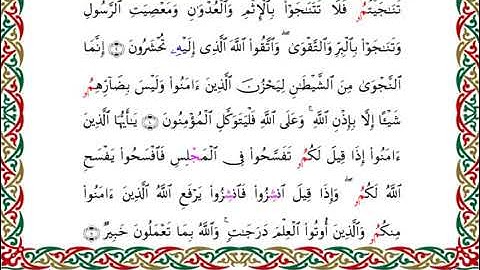 تَنَـٰجَيْتُمُۥ فَلَا تَتَنَـٰجَوْا۟ بِٱلْإِثْمِ وَٱلْعُدْوَٰنِ وَمَعْصِيَتِ ٱلرَّسُولِ
وَتَنَـٰجَوْا۟ بِٱلْبِرِّ وَٱلتَّقْوَىٰ ۖ وَٱتَّقُوا۟ ٱللَّهَ ٱلَّذِى إِلَيْهِۦ تُحْشَرُونَ ٩ إِنَّمَا
ٱلنَّجْوَىٰ مِنَ ٱلشَّيْطَـٰنِ لِيَحْزُنَ ٱلَّذِينَ ءَامَنُوا۟ وَلَيْسَ بِضَآرِّهِمُۥ
شَيْـًٔا إِلَّا بِإِذْنِ ٱللَّهِ ۚ وَعَلَى ٱللَّهِ فَلْيَتَوَكَّلِ ٱلْمُؤْمِنُونَ ١٠ يَـٰٓأَيُّهَا ٱلَّذِينَ
ءَامَنُوا۟ إِذَا قِيلَ لَكُمُۥ تَفَسَّحُوا۟ فِى ٱلْمَجْلِسِ فَٱفْسَحُوا۟ يَفْسَحِ
ٱللَّهُ لَكُمُۥ ۖ وَإِذَا قِيلَ ٱنشِزُوا۟ فَٱنشِزُوا۟ يَرْفَعِ ٱللَّهُ ٱلَّذِينَ ءَامَنُوا۟
مِنكُمُۥ وَٱلَّذِينَ أُوتُوا۟ ٱلْعِلْمَ دَرَجَـٰتٍ ۚ وَٱللَّهُ بِمَا تَعْمَلُونَ خَبِيرٌ ١١